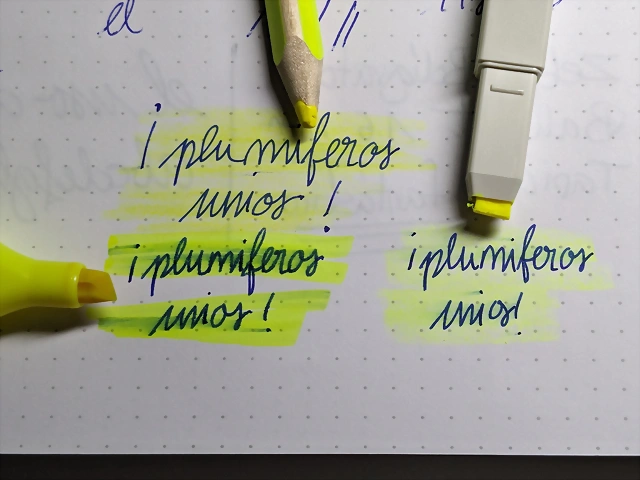 el
¡plumiferos
unios!
¡plumiferos
unios!
¡plumiferos
unios!